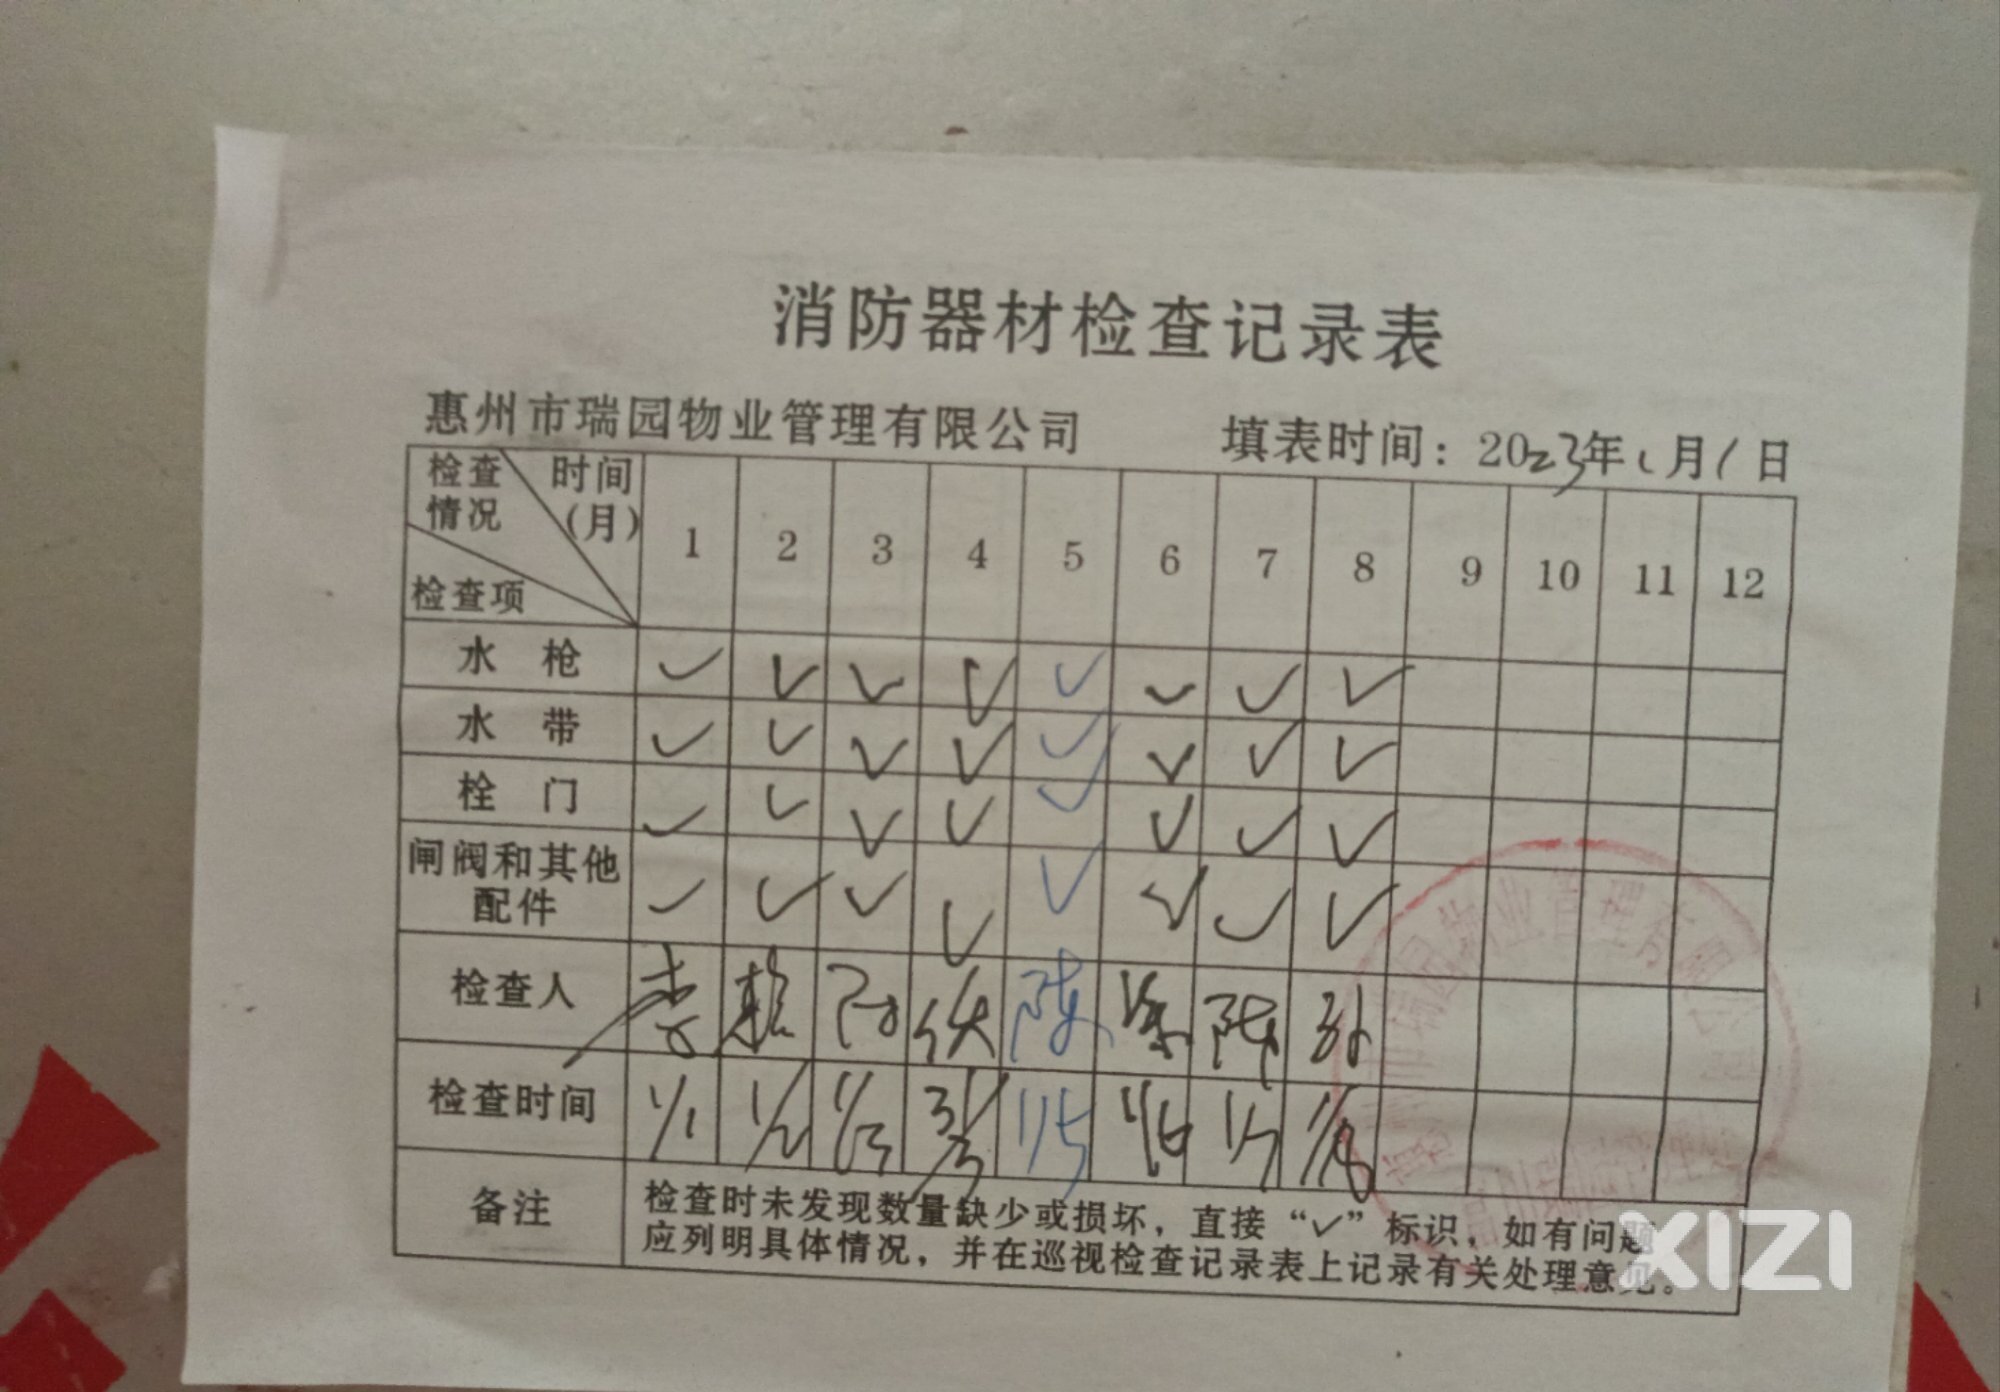 消防器材检查记录表
惠州市瑞园物业管理有限公司 填表时间：2023年1月1日
检查情况 时间(月) 检查项 1 2 3 4 5 6 7 8 9 10 11 12
水枪 ✓ ✓ ✓ ✓ ✓ ✓ ✓ ✓
水带 ✓ ✓ ✓ ✓ ✓ ✓ ✓ ✓
栓门 ✓ ✓ ✓ ✓ ✓ ✓ ✓ ✓
闸阀和其他
配件 ✓ ✓ ✓ ✓ ✓ ✓ ✓ ✓
检查人
检查时间 1/1 1/2 1/3 1/5 1/6 1/7 1/8
备注 检查时未发现数量缺少或损坏，直接“✓”标识，如有问题
应列明具体情况，并在巡视检查记录表上记录有关处理意见。
XIZI